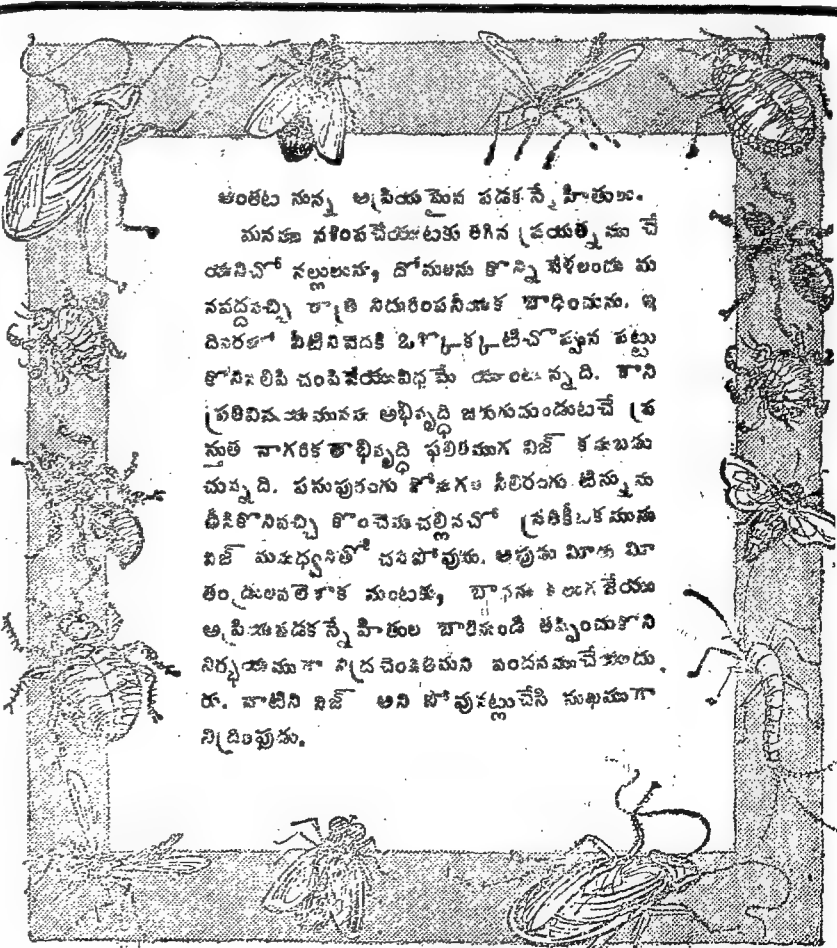 అంతట నున్న అప్రియమైన పడకస్నేహితులు.
మనము నశింపచేయుటకు తగిన ప్రయత్నము చే
యనిచో నల్లులును, దోమలును కొన్ని వేళలందు మ
నవద్దవచ్చి రాత్రి నిదురింపనీయక బాధించును. ఇ
దివరలో వీటినివెదకి ఒక్కొక్కటిచొప్పున పట్టు
కొనినలిపి చంపివేయువిధమే యుంటున్నది. కాని
ప్రతివిషయమునను అభివృద్ధి జరుగుచుండుటచే ప్ర
స్తుత నాగరికతాభివృద్ధి ఫలితముగ విజ్ కనుబడు
చున్నది. పసుపురంగు నీలిరంగు టిన్నును
తీసికొనివచ్చి కొంచెముచల్లినచో ప్రతికీటకమును
విజ్ మను ధ్వనితో చనిపోవును. అపుడు మీరు మీ
తండ్రులవలెగాక మంటకు, బాధను కలుగజేయు
అప్రియపడకస్నేహితుల బారినుండి తప్పించుకొని
నిర్భయముగా నిద్రచెందితిమని వందనముచేయుదు
రు. వాటిని విజ్ అని పోవునట్లుచేసి సుఖముగా
నిద్రింపుడు.